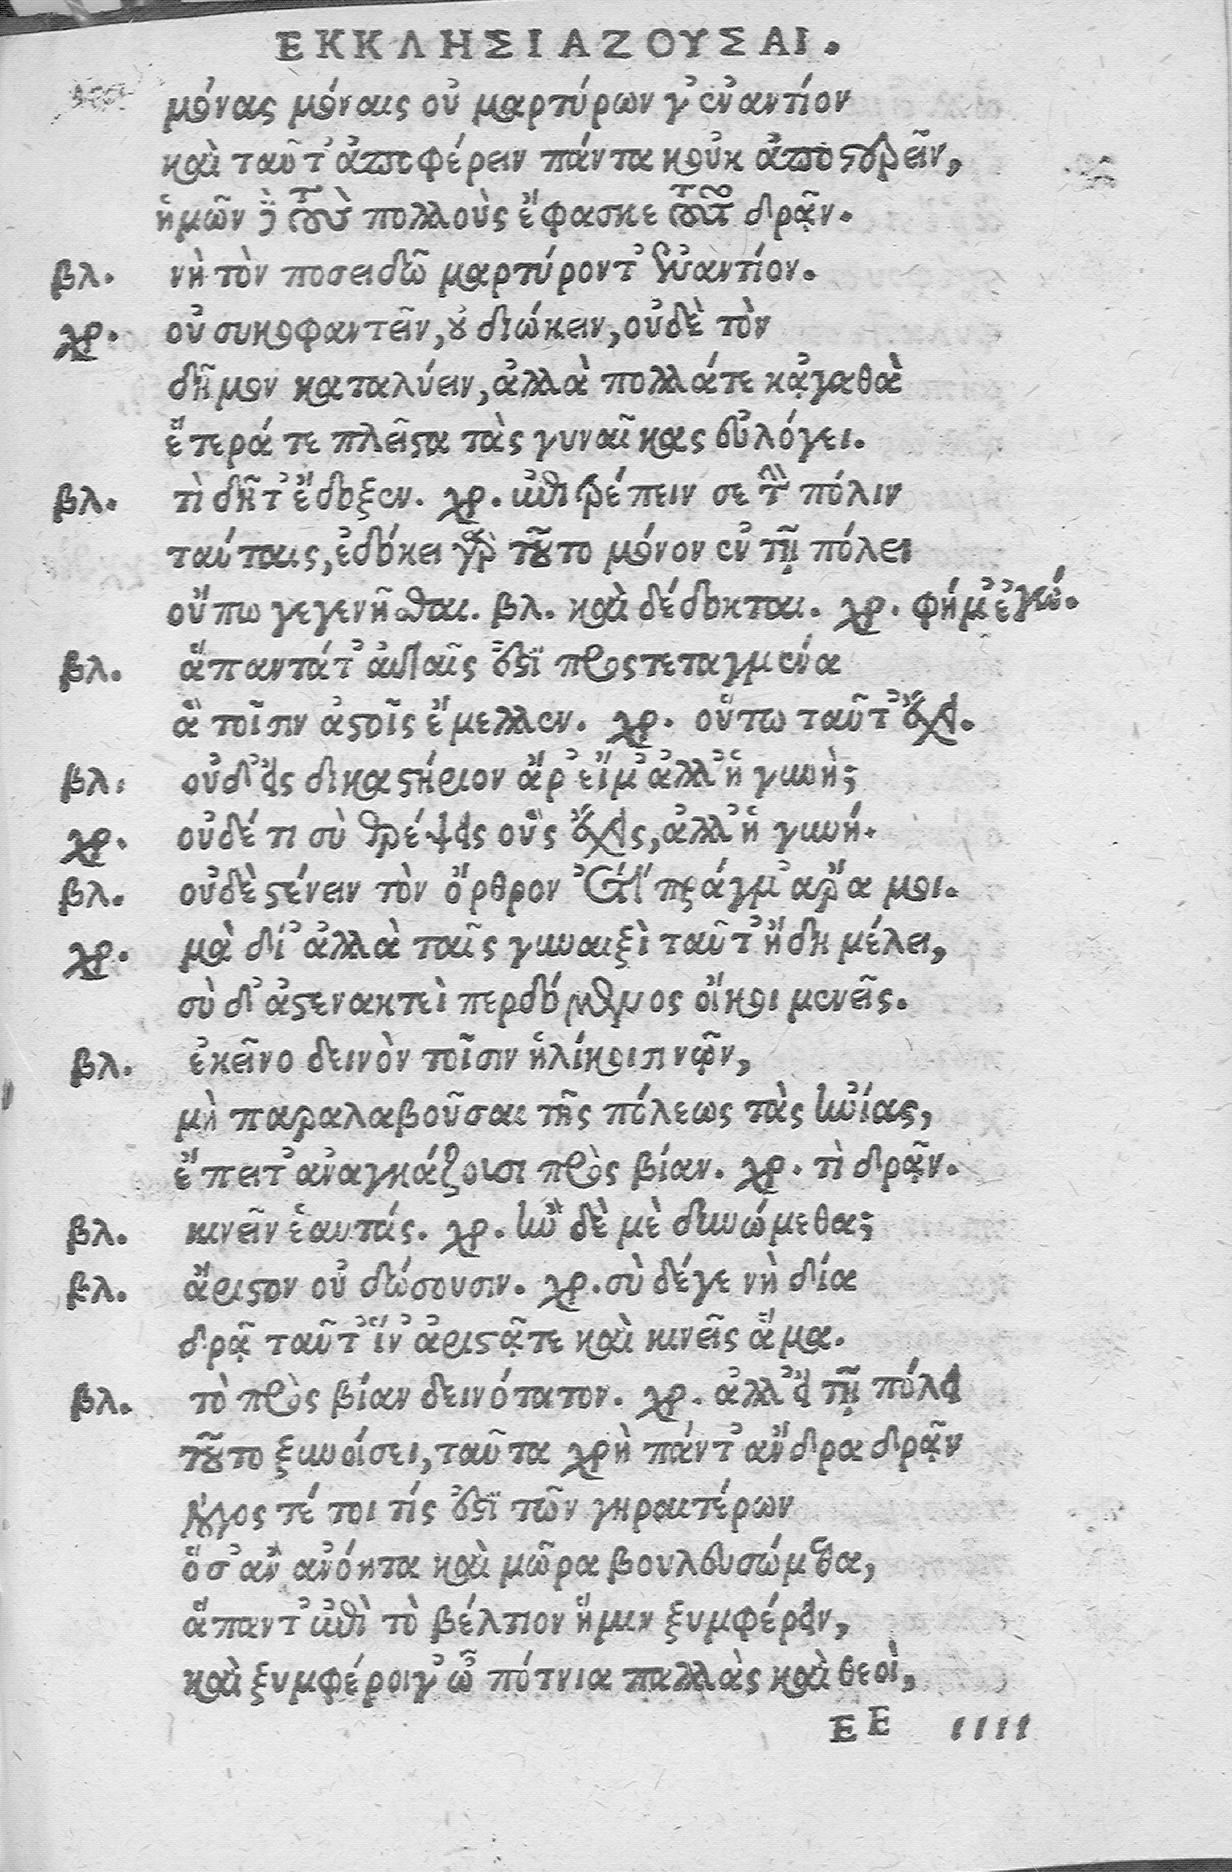 ΕΚΚΛΗΣΙΑΖΟΥΣΑΙ.
μόνας μόναις οὐ μαρτύρων γ' ἐναντίον
καὶ ταῦτ' ἀποφέρειν πάντα κοὐκ ἀποστρεῖν,
ἡμῶν δὲ τοὺς πολλοὺς ἔφασκε τοῦτο δρᾶν.
βλ. νὴ τὸν ποσειδῶ μαρτύροντ' ἐναντίον.
χρ. οὐ συκοφαντεῖν, οὐ διώκειν, οὐδὲ τὸν
δῆμον καταλύειν, ἀλλὰ πολλάτε κᾀγαθὰ
ἕτερά τε πλεῖστα τὰς γυναῖκας εὐλόγει.
βλ. τὶ δῆτ' ἔδοξεν. χρ. ἐπιτρέπειν σε τὴν πόλιν
ταύταις, ἐδόκει γὰρ τοῦτο μόνον ἐν τῇ πόλει
οὔπω γεγενῆσθαι. βλ. καὶ δέδοκται. χρ. φήμ' ἐγώ.
βλ. ἅπαντάτ' αὐταῖς ἐστὶ προςτεταγμένα
ἃ τοῖσιν ἀστοῖς ἔμελλεν. χρ. οὕτω ταῦτ' ἔχει.
βλ. οὐδ' εἰς δικαστήριον ἄρ' εἴμ' ἀλλ' ἡ γυνὴ;
χρ. οὐδέ τι σὺ θρέψεις οὓς ἔχεις, ἀλλ' ἡ γυνή.
βλ. οὐδὲ στένειν τὸν ὄρθρον ἔτι πράγμ' ἄρα μοι.
χρ. μὰ δί' ἀλλὰ ταῖς γυναιξὶ ταῦτ' ἤδη μέλει,
σὺ δ' ἀστενακτεὶ περδόμενος οἴκοι μενεῖς.
βλ. ἐκεῖνο δεινὸν τοῖσιν ἡλίκοισι νῷν,
μὴ παραλαβοῦσαι τῆς πόλεως τὰς ἡνίας,
ἔπειτ' ἀναγκάζουσι πρὸς βίαν. χρ. τὶ δρᾷν.
βλ. κινεῖν ἑαυτάς. χρ. ἢν δὲ μὲ δυνώμεθα;
βλ. ἄριστον οὐ δώσουσιν. χρ. σὺ δέγε νὴ δία
δρᾷ ταῦτ' ἵν' ἀριστᾷτε καὶ κινεῖς ἅμα.
βλ. τὸ πρὸς βίαν δεινότατον. χρ. ἀλλ' εἰ τῇ πόλει
τοῦτο ξυνοίσει, ταῦτα χρὴ πάντ' ἄνδρα δρᾷν
λόγος τέ τοι τίς ἐστὶ τῶν γηραιτέρων
ὅσ' ἂν ἀνόητα καὶ μῶρα βουλευσώμεθα,
ἅπαντ' ἐπὶ τὸ βέλτιον ἥμιν ξυμφέρειν,
καὶ ξυμφέροιγ' ὦ πότνια παλλὰς καὶ θεοὶ,
ΕΕ iiii